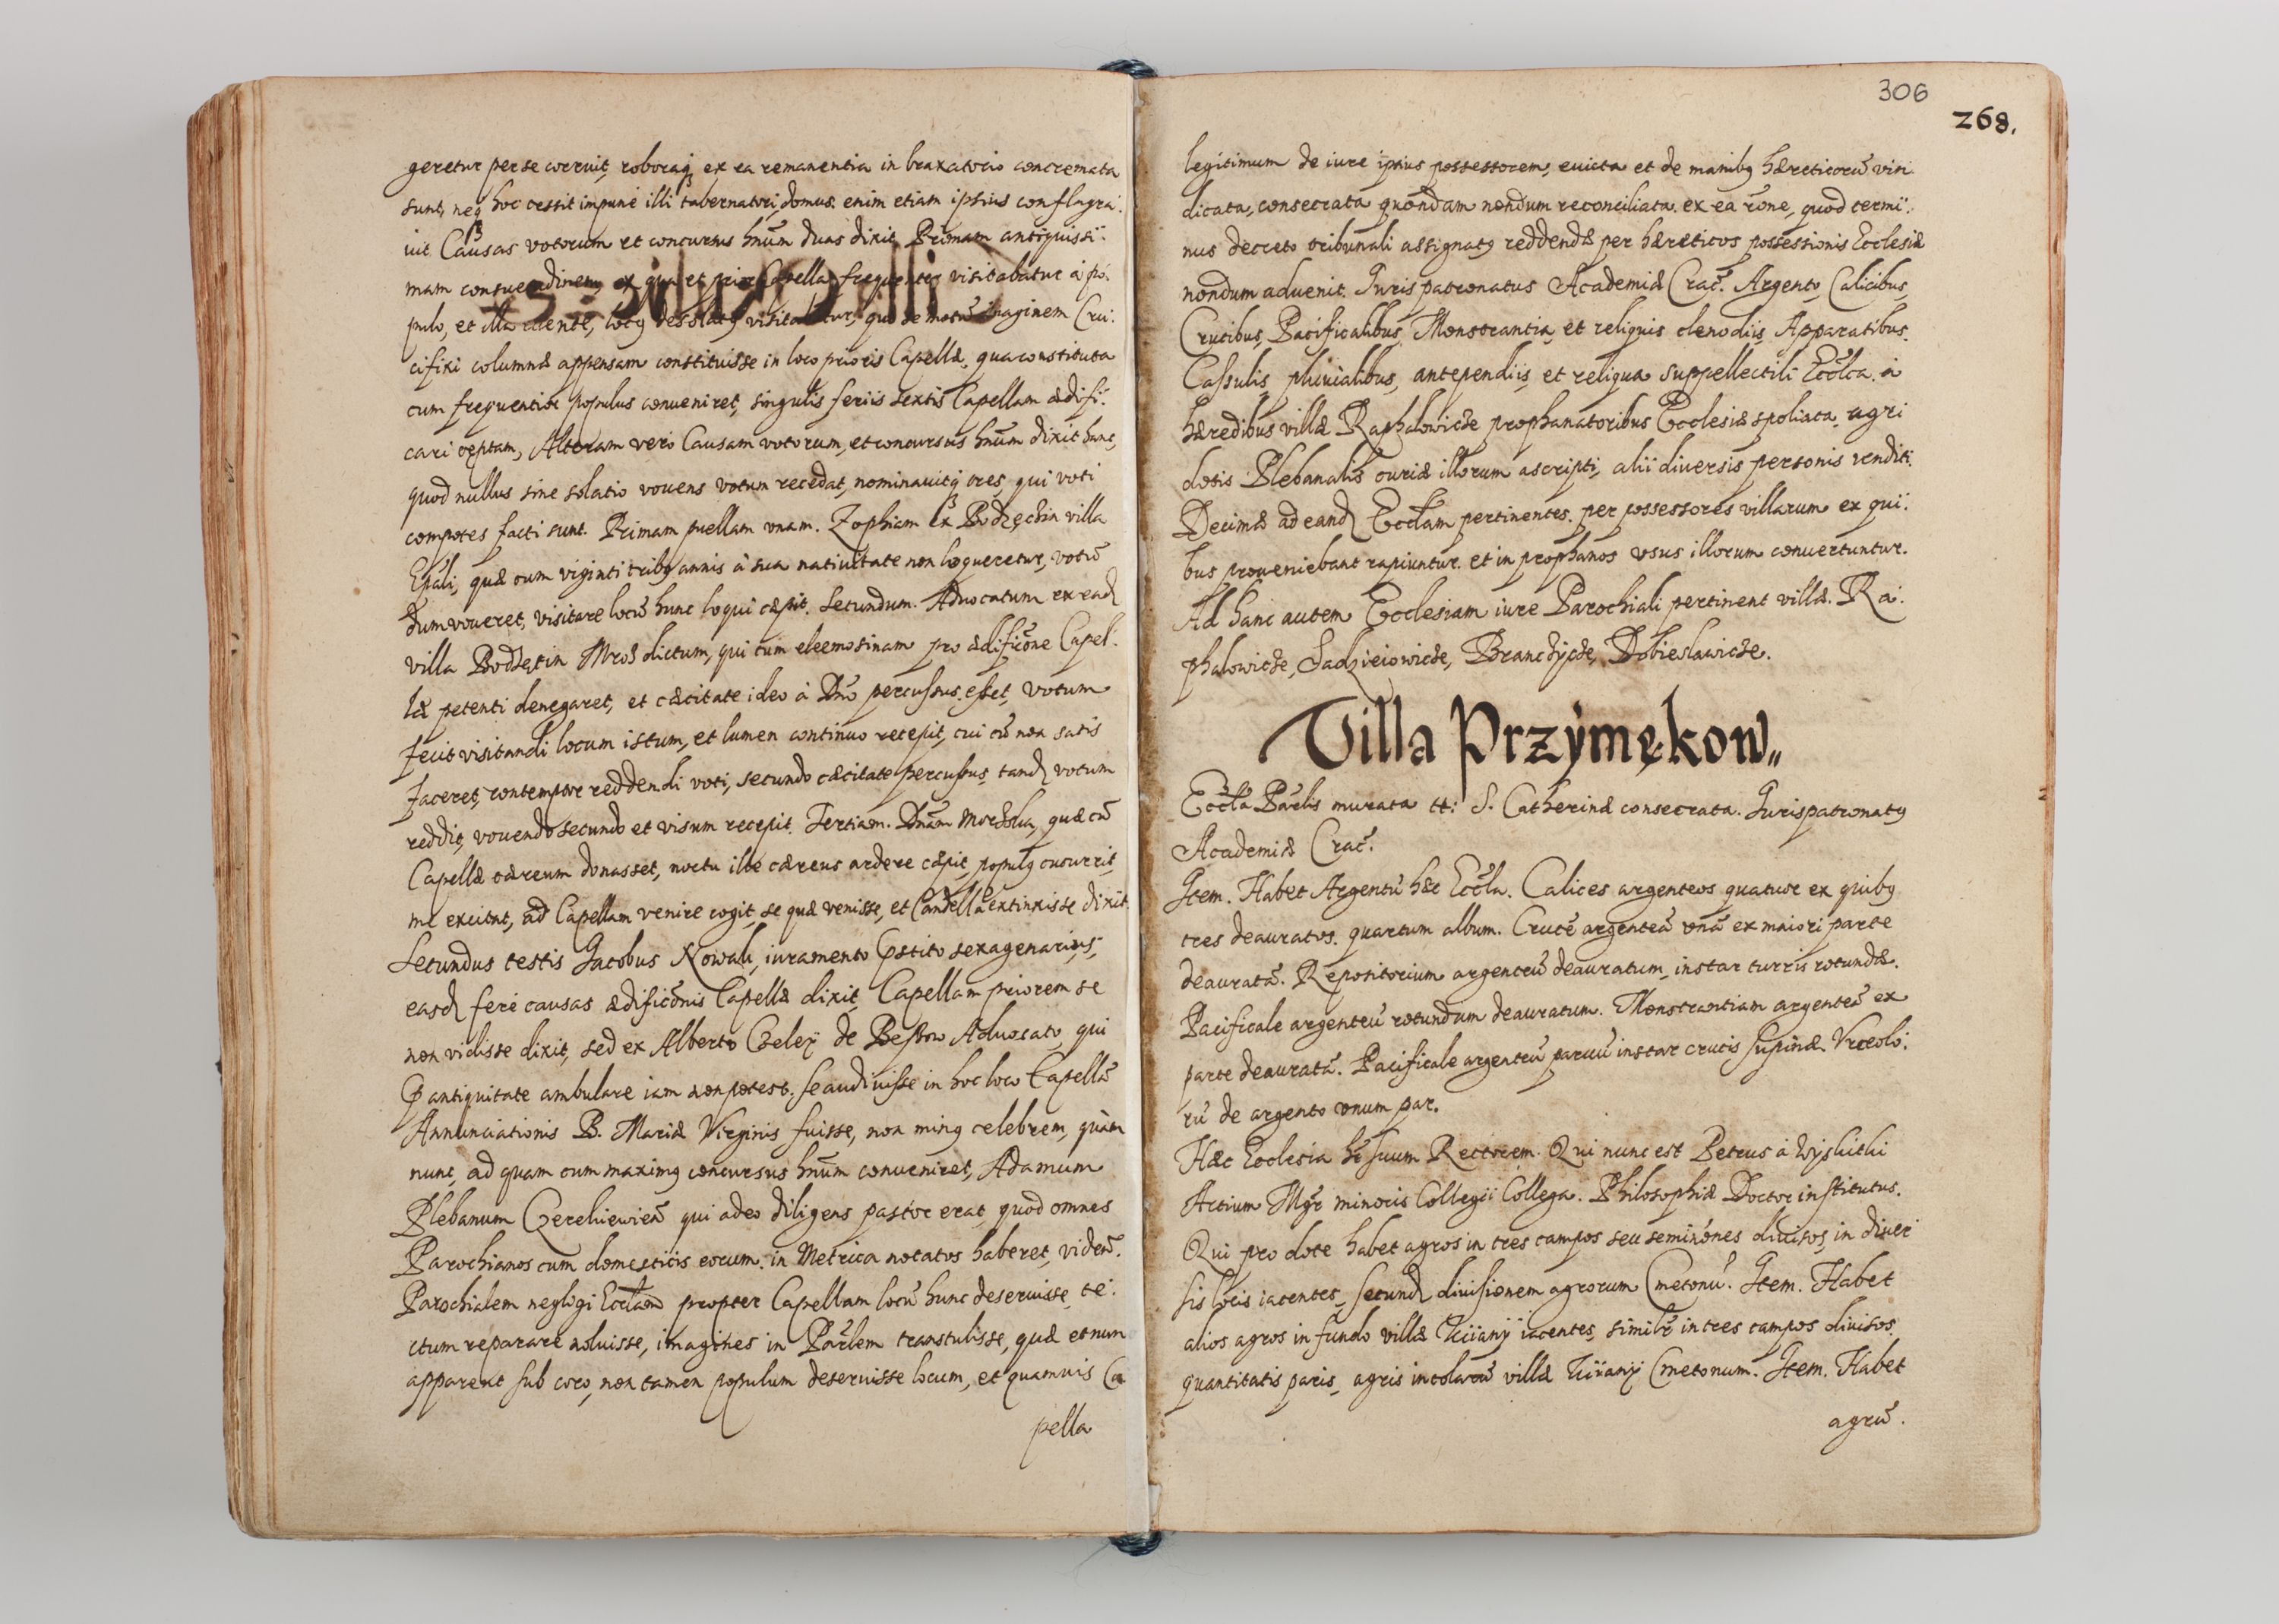 geretur per se corruit, roboraq3 ex ea remanentia in braxatorio concremata
sunt, neq3 hoc cessit impunè illi tabernatori, domus enim etiam ipsius conflagra:
uit. Causas votorum et concursus hnum duas dixit Primam antiquissi:
mam consuetudinem, ex qua et prior Capella frequenter visitabatur à po:
pulo, et illa
cifixi columnæ appensam constituisse in loco prioris Capellæ, qua constituta
cum frequentior populus conueniret, singulis feriis sextis Capellam ædifi:
cari cęptam, Alteram verò Causam votorum, et concursus hnum dixit hanc,
quod nullus sine solatio vouens votum recedat, nominauitq3 tres, qui voti
compotes facti sunt. Primam puellam vnam. Zophiam ex Bodzęchin villa
Epali, quæ cum viginti tribg annis à sua natiuitate non loqueretur, votū
dum voueret, visitare locū hunc loqui cæpit. Secundum. Aduocatum ex ead
villa Bodzętin Mroz dictum, qui cum eleemosinam pro ædificone Capel:
læ petenti denegaret, et cæcitate ideo à Dno percussus esset, votum
fecit visitandi locum istum, et lumen continuo recepit, cui cū non satis
faceret, contemptor reddendi voti, secundo cæcitate percussus, tand votum
reddit, vouendo secundo et visum recepit. Tertiam. Dnam quæ cū
Capellæ cæreum donasset, noctu ille cæreus ardere cæpit, populg cucurrit,
me excitat, ad Capellam venire cogit, se quæ venisse, et Candellā extinxisse dixit
Secundus testis Jacobus Nowak, iuramento pstito sexagenarius,
easd ferè causas ædificonis Capellæ dixit, Capellam priorem se
non vidisse dixit, sed ex Alberto de Aduocato, qui
p antiquitate ambulare iam non potest. se audiuisse in hoc loco Capellā
Annunciationis B. Mariæ Virginis fuisse, non ming celebrem, quàm
nunc, ad quam cum maximg concursus hnum conueniret, Adamum
Plebanum qui adeo diligens pastor erat, quod omnes
Parochianos cum domesticis eorum in Metrica notatos haberet, viden:
Parochialem negligi Ecclam propter Capellam locū hunc deseruisse, te:
ctum reparare noluisse, imagines in Parlem transtulisse, quæ et nun
apparent sub coro, non tamen populum deseruisse locum, et quamuis Ca
pella
306
268.
legitimum de iure ipsius possessorem, euicta et de manibg hæreticorū vin
dicata, consecrata quondam nondum reconciliata ex ea rone, quod termi:
nus decreto tribunali assignatg reddendæ per hæreticos possessionis Ecclesiæ
nondum aduenit. Iuris patronatus Academiæ Crac. Argento, Calicibus,
Crucibus, Pacificalibus, Monstrantia, et reliquis clenodiis, Apparatibus.
Cassulis, pluuialibus, antependiis, et reliqua suppellectili Ecclca. à
hæredibus villæ Raphalowicze prophanatoribus Ecclesiæ spoliata, agri
dotis Plebanalis curiæ illorum ascripti, alii diuersis personis venditi.
Decimæ ad eand Ecclam pertinentes, per possessores villarum ex qui:
bus proueniebant rapiuntur et in prophanos vsus illorum conuertuntur.
Ad hanc autem Ecclesiam iure Parochiali pertinent villæ. Ra:
phalowicze, Sadzieiowicze, Pranczÿcze, Dobieslawicze.
Villa Przÿmękow„
Eccla Parlis murata tt: S. Catherinæ consecrata. Iurispatronatg
Academiæ Crac.
Item. Habet Argentū hæc Eccla. Calices argenteos quatuor ex quibg
tres deauratos. quartum album. Crucē argenteā vnā ex maiori parte
deauratā. Repositorium argenteū deauratum, instar turris rotundæ.
Pacificale argenteū rotundum deauratum. Monstrantiam argenteā ex
parte deauratā. Pacificale argenteū paruū instar crucis supinæ. Vrceolo:
rū de argento vnum par.
Hæc Ecclesia ht suum Rectorem. Qui nunc est Petrus à Wyskitki
Artium Mgr minoris Collegii Collega. Philosophiæ Doctor institutus.
Qui pro dote habet agros in tres campos seu seminones diuisos, in diuer
sis locis iacentes, secund diuisionem agrorum Cmetonū. Item. Habet
alios agros in fundo villæ iacentes, similr in tres campos diuisos
quantitatis paris, agris incolarū villæ Cmetonum. Item. Habet
agrū.